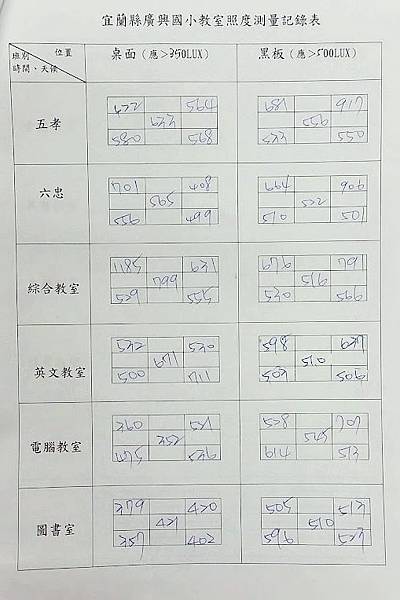 宜蘭縣廣興國小教室照度測量記錄表
班別 位置 時間、天候
桌面(應>350LUX)
黑板(應>500LUX)
五孝
632 564 681 917
633 556
580 568 533 550
六忠
701 408 664 906
565 522
556 499 510 501
綜合教室
1185 631 676 791
799 516
529 555 530 566
英文教室
532 530 598 637
671 510
500 711 503 506
電腦教室
360 521 528 707
352 545
475 536 614 513
圖書室
379 420 505 513
421 510
357 402 596 527